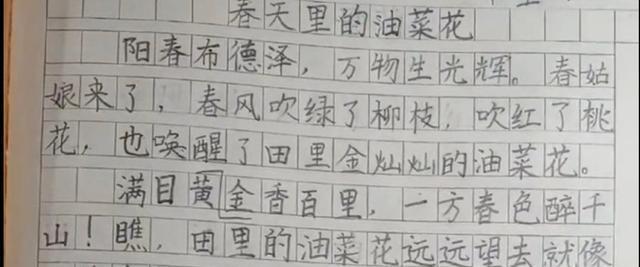 春天里的油菜花
阳春布德泽，万物生光辉。春姑
娘来了，春风吹绿了柳枝，吹红了桃
花，也唤醒了田里金灿灿的油菜花。
满目黄金香百里，一方春色醉千
山！瞧，田里的油菜花远远望去就像